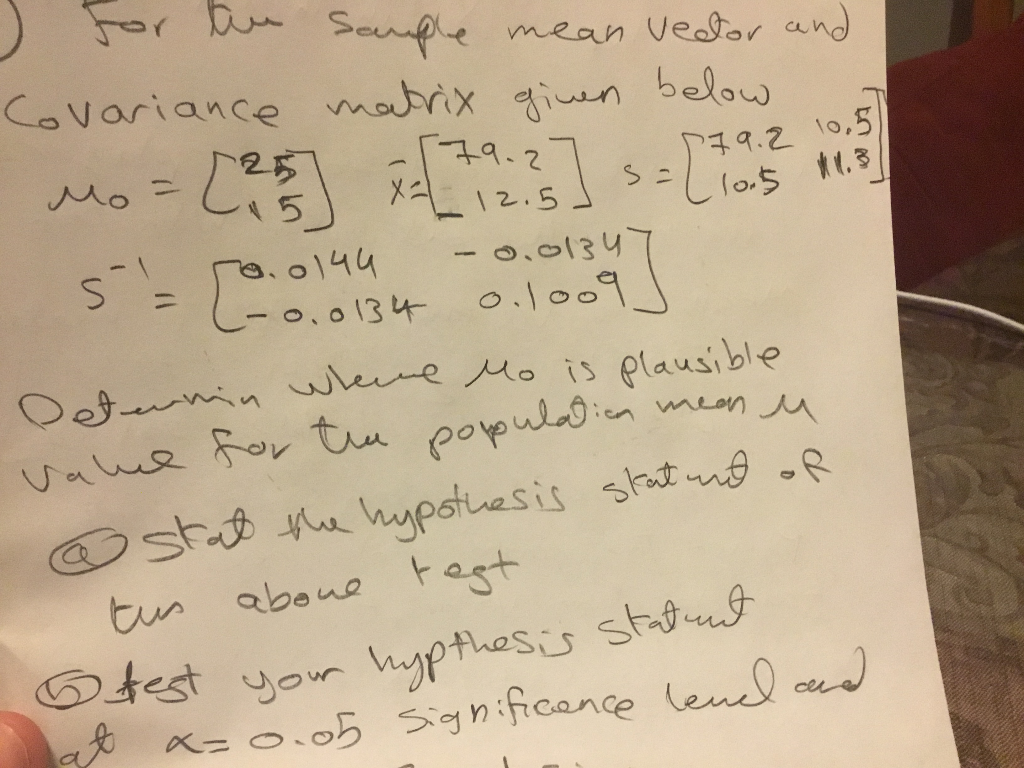 ) For the sample mean vector and
Covariance matrix given below
μ₀ = [25 15] x̄ = [79.2 12.5] S = [79.2 10.5 10.5 11.3]
S⁻¹ = [0.0144 -0.0134 -0.0134 0.1009]
Determin where μ₀ is plausible
value for the population mean μ
(a) Stat the hypothesis statunt of
the above test
(b) test your hypthesis statunt
at α = 0.05 significance level and